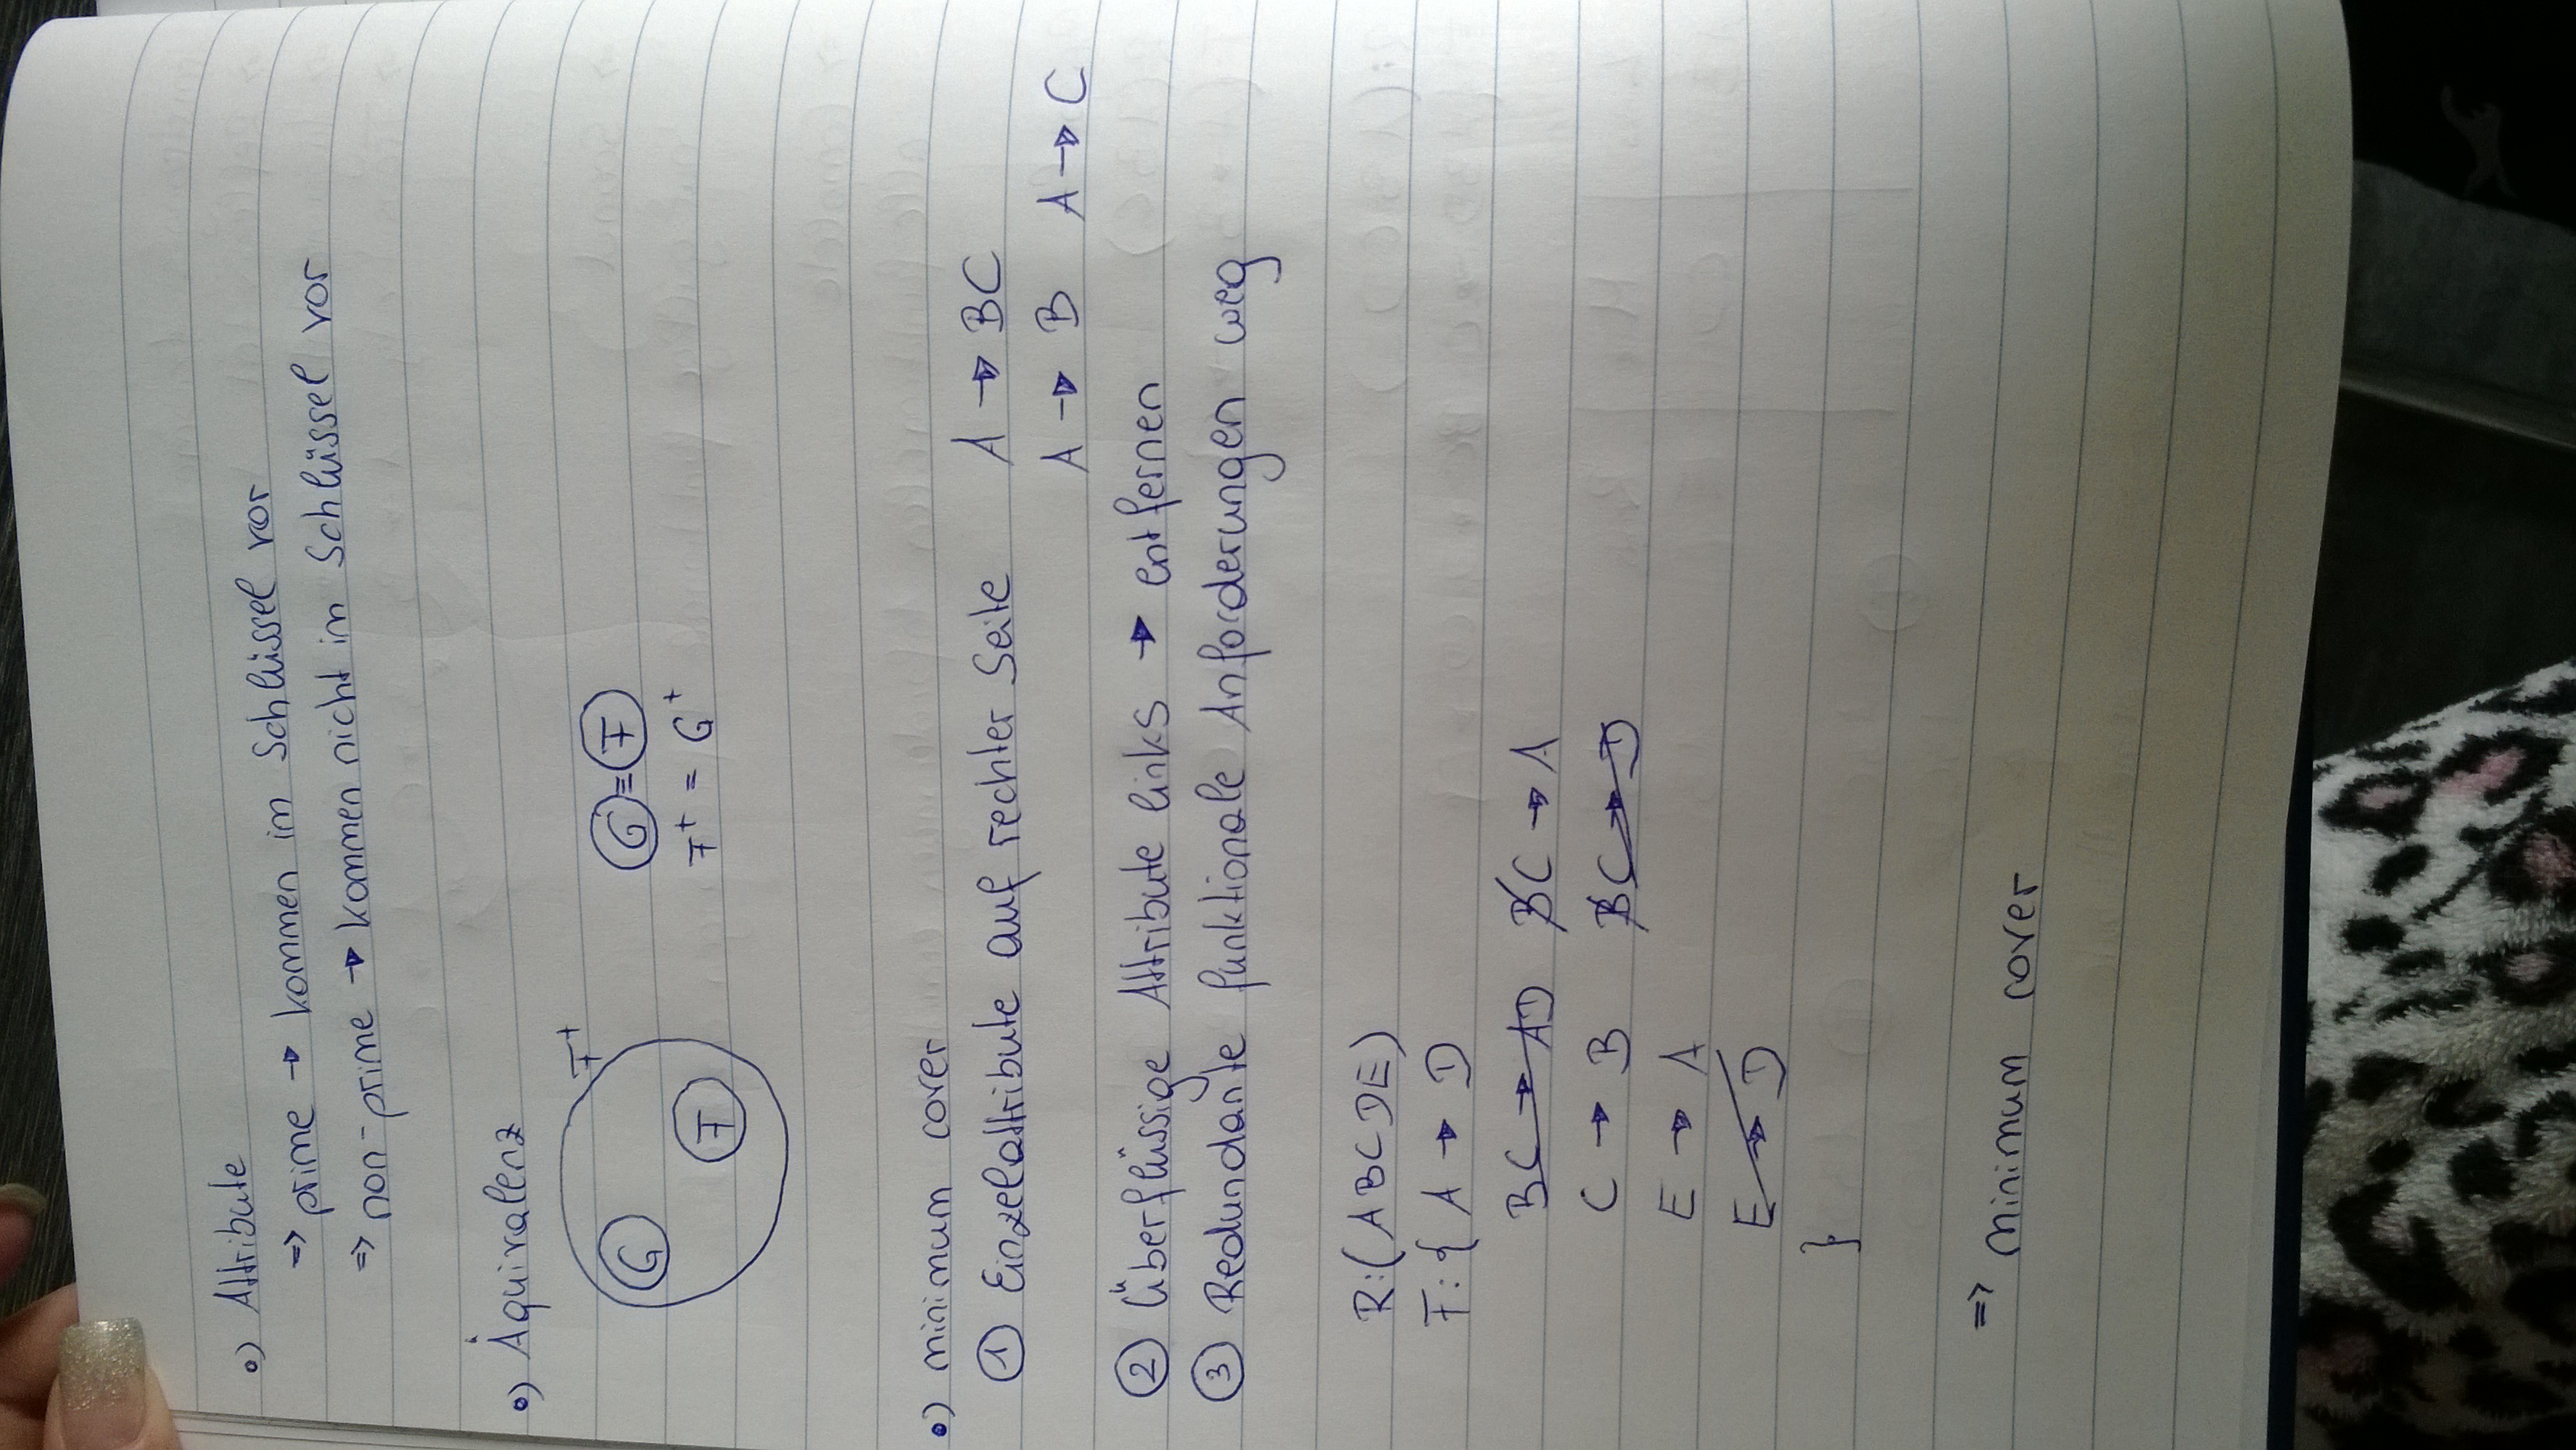 o) Attribute
=> prime → kommen im Schlüssel vor
=> non-prime → kommen nicht im Schlüssel vor
o) Äquivalenz
F⁺
G F
G ≡ F
F⁺ = G⁺
o) minimum cover
① Einzelattribute auf rechter Seite A → BC
A → B A → C
② Überflüssige Attribute links → entfernen
③ Redundante funktionale Anforderungen weg
R:(ABCDE)
F:{ A → D
BC → AD BC → A
C → B BC → D
E → A
E → D
}
=> minimum cover